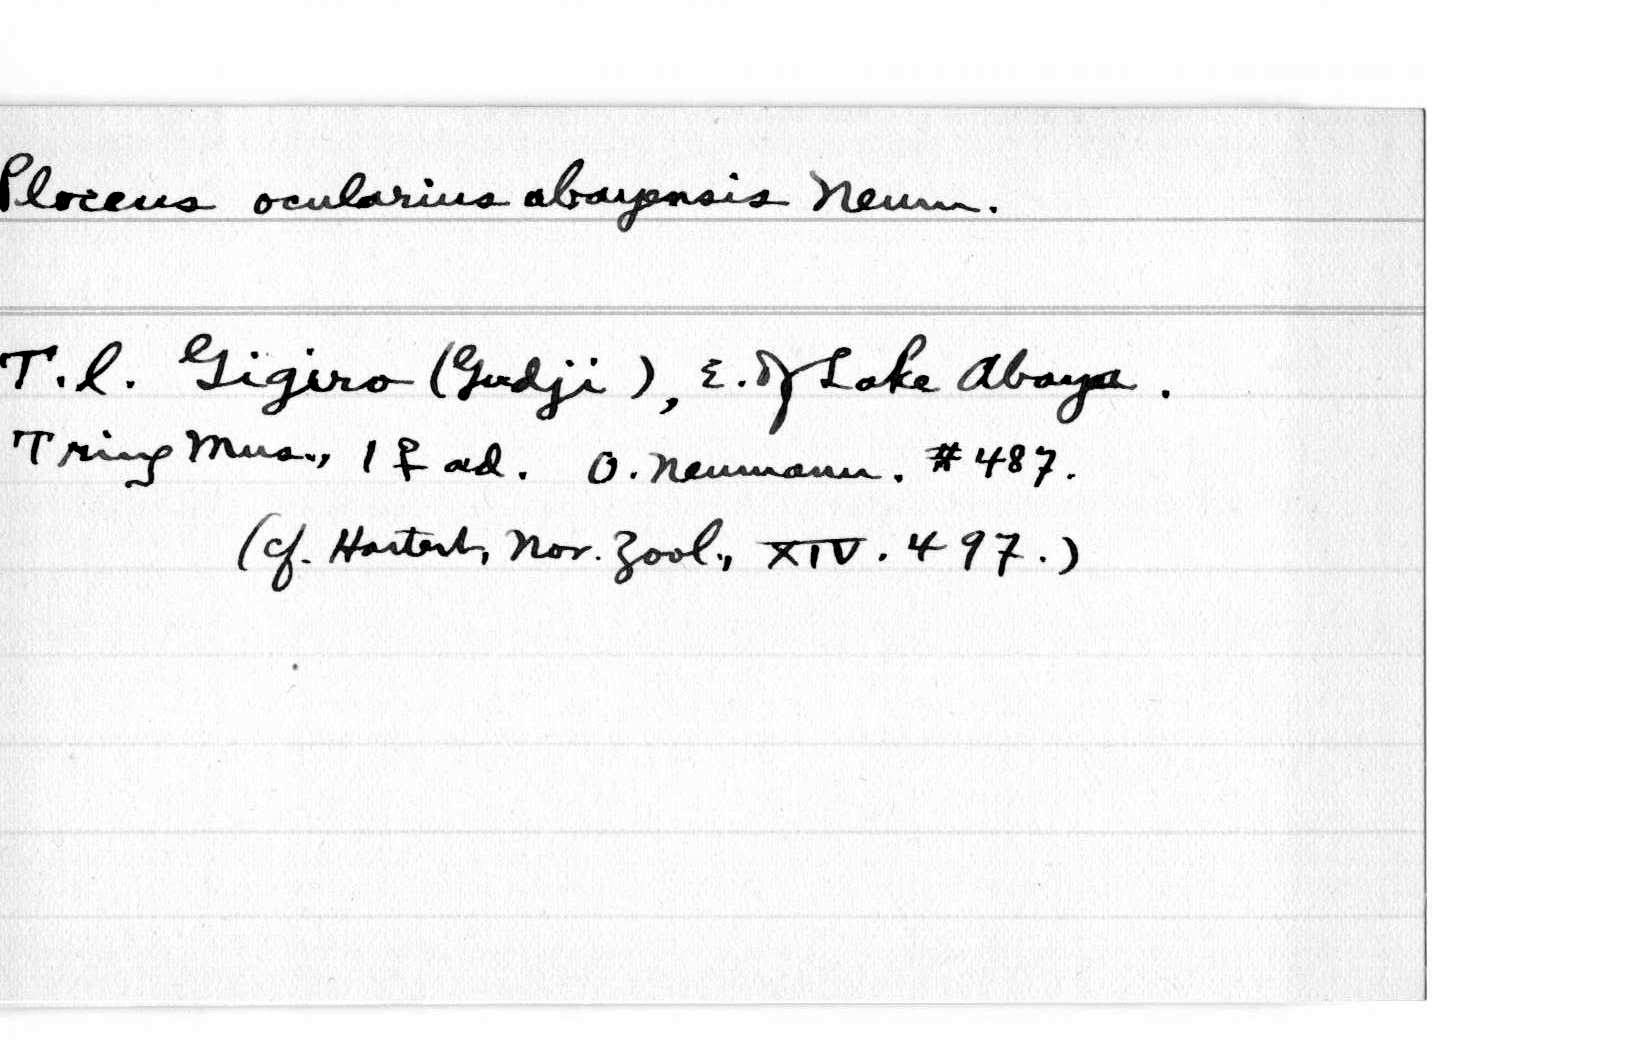 Ploceus ocularius abayensis Neum.
T.l. Gigiro (Gudji), E. of Lake Abaya.
Tring Mus., 1 ♀ ad. O. Neumann. #487.
(cf. Hartert, Nov. Zool., XIV. 497.)